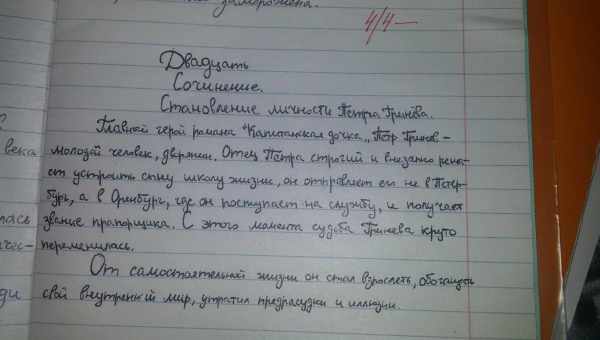 заморожена.
4/4-
Двадцать
Сочинение.
Становление личности Петра Гринёва.
Главной герой романа "Капитанская дочка„ Пётр Гринёв -
века
молодой человек, дворянин. Отец Петра строгий и внезапно реша-
ет устроить сыну школу жизни, он отправляет его не в Петер-
бург, а в Оренбург, где он поступает на службу, и получает
лась
звание прапорщика. С этого момента судьба Гринёва круто
чес-
переменилась.
От самостоятельной жизни он стал взрослеть, обогащать
ди
свой внутренный мир, утратил предрассудки и иллюзии.